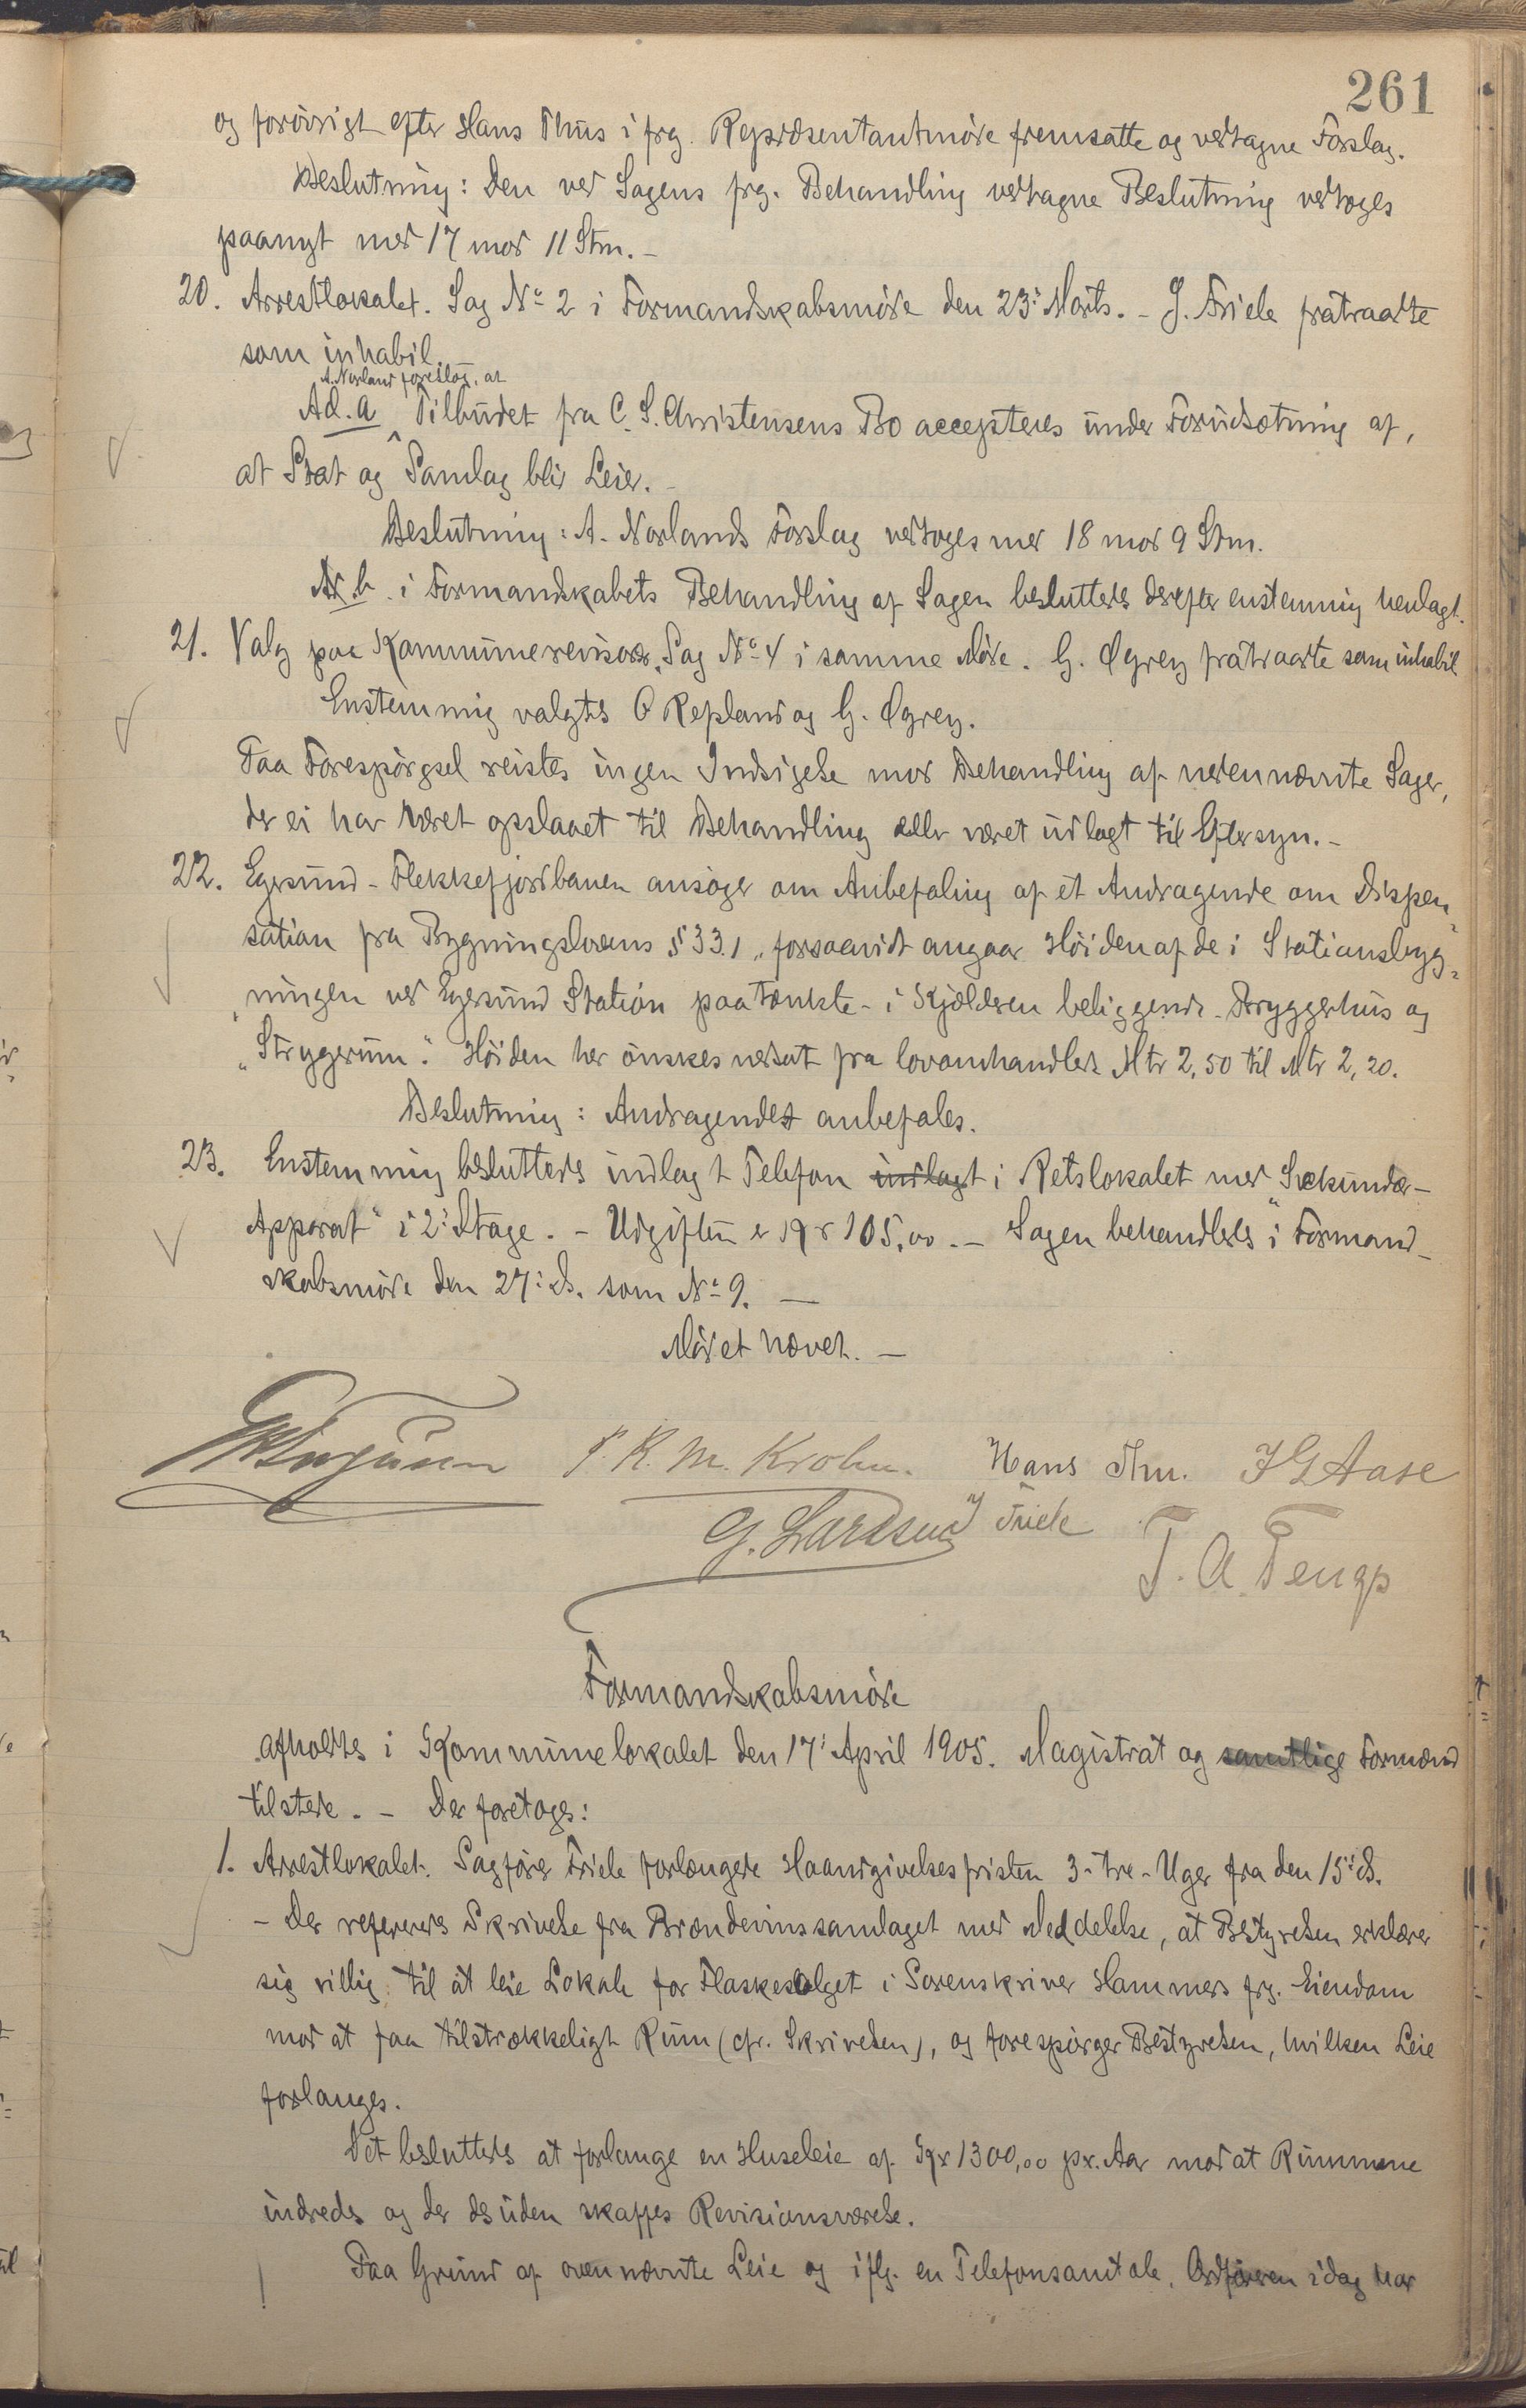 261
og forövrigt efter Hans Thus i frg. Repræsentantmöde fremsatte og vedtagne Forslag.
Beslutning: Den ved Sagens frg. Behandling vedtagne Beslutning vedtoges
paanyt med 17 mod 11 Stm. –
20. Arrestlokalet. Sag No 2 i Formandskabsmöde den 23' Marts. – J. Friele fratraadte
som inhabil. –
A. Norland foreslog, at
Ad. a Tilbudet fra C. S. Christensens Bo accepteres under Forudsætning af,
at Stat og Samlag blir Leier. –
Beslutning: A. Norlands Forslag vedtoges med 18 mod 9 Stm.
Ad. b. i Formandskabets Behandling af Sagen besluttedes derefter enstemmig henlagt.
21. Valg paa Kommunerevisor. Sag No 4 i samme Möde. G. Øgrey fratraadte som inhabil
Enstemmig valgtes O Repland og G. Øgrey.
Paa Forespörgsel reistes ingen Indsigelse mod Behandling af nedennævnte Sager,
der ei har været opslaaet til Behandling eller været udlagt til Eftersyn. –
22. Egersund – Flekkefjordbanen ansöger om Anbefaling af et Andragende om Dispen„
sation fra Bygningslovens § 33.1 „forsaavidt angaar Höiden af de i Stationsbyg„
„ningen ved Egersund Station paatænkte – i Kjælderen beliggende – Bryggerhus og
„Strygerum". Höiden her önskes nedsat fra lovomhandlede Mtr 2,50 til Mtr 2,20.
Beslutning: Andragendet anbefales.
23. Enstemmig besluttedes indlagt Telefon indlagt i Retslokalet med „Sekundær–
Apparat" i 2' Etage. – Udgiften er Kr 105,00. – Sagen behandledes i Formand–
skabsmöde den 27' ds. som No 9. –
Mödet hævet. –
P. R. M. Krohn. Hans Thu. J G Aase
G. Lardsen J Friele
T. A. Tengs
Formandskabsmöde
afholdtes i Kommunelokalet den 17' April 1905. Magistrat og samtlige Formænd
tilstede. – Der foretoges:
1. Arrestlokalet. Sagförer Friele forlængede Haandgivelsesfristen 3 – tre – Uger fra den 15' ds.
– Der refereredes Skrivelse fra Brændevinssamlaget med Meddelelse, at Bestyrelsen erklærer
sig villig til at leie Lokale for Flaskesalget i Sorenskriver Hammers frg. Eiendom
mod at faa tilstrækkeligt Rum (cfr. Skrivelsen), og forespörger Bestyrelsen, hvilken Leie
forlanges.
Det besluttedes at forlange en Husleie af Kr 1300,00 pr. Aar mod at Rummene
indredes og der desuden skaffes Revisionsværelse.
Paa Grund af ovennævnte Leie og iflg. en Telefonsamtale, Ordföreren idag har